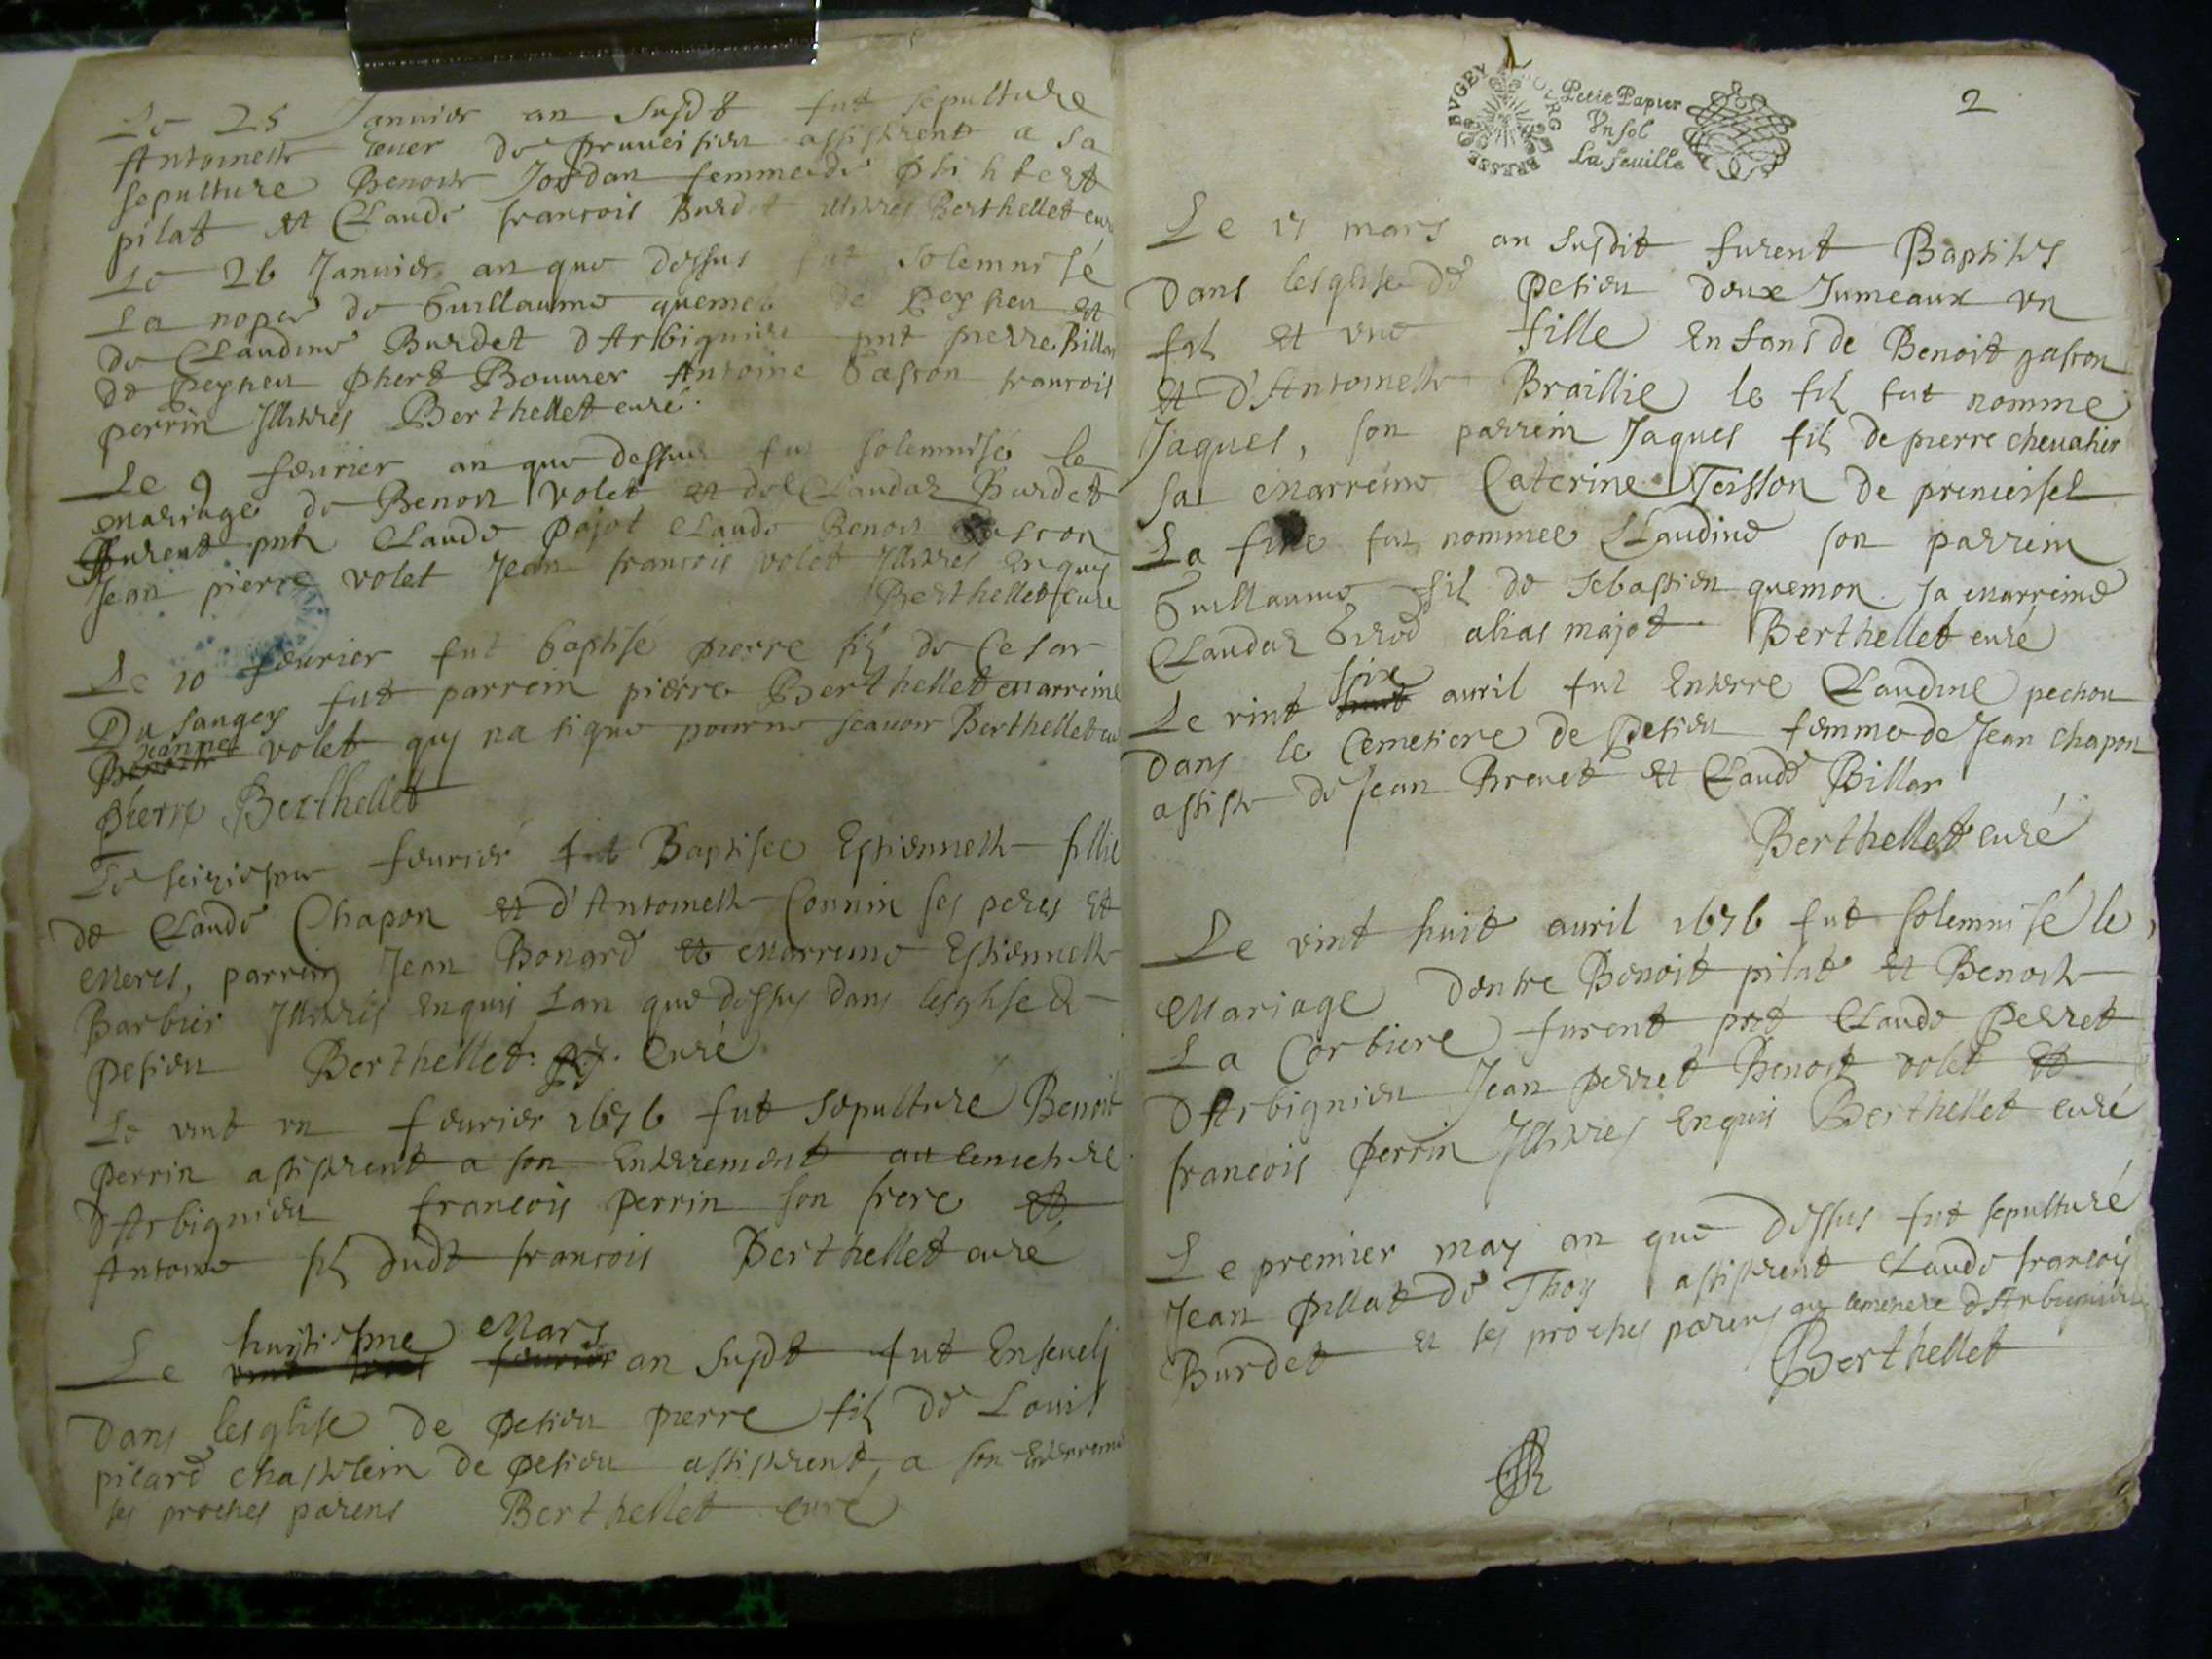 Le 25 Januier an Susdt fut sepulture
Antoinette de assisterent a sa
sepulture Benoite Jordan femme de Philibert
pilat et Claude francois Burdet Illitres Berthellet curé
Le 26 Januier an que dessus fut solemnisé
La nopce de Guillaume quemet de Peyzieu et
de Claudine Burdet d'Arbignieu pnt pierre Billon
de Peyzieu phert Bouuier Antoine Gascon francois
perrin Illitres Berthellet curé.
Le 9 feurier an que dessus fut solemnisé le
mariage de Benoit volet et de Claudaz Burdet
furent pnts Claude pajot Claude Benoit Gascon
Jean pierre volet Jean francois volet Illitres Enquis
Berthellet curé
Le 10 feurier fut baptisé pierre fils de Cesar
Du Saugey fut parrein pierre Berthellet marreine
Jeanne volet quy na signe pour ne scauoir Berthellet curé
pierre Berthellet
Le seiziesme feurier fut Baptisee Estiennette fillie
de Claude Chapon et d'Antoinette Connin ses peres et
meres, parrein Jean Bonard et marreine Estiennette
Barbier Illitres enquis Lan que dessus dans lesglise de
Pesieu Berthellet. Curé
Le vint vn feurier 1676 fut sepulturé Benoit
perrin assisterent a son Enterrement au cemetiere
d'Arbignieu francois perrin son frere et
Antoine fils dudt francois Berthellet curé
huitiesme Mars
Le feurier an susdt fut Enseueli
Dans lesglise de Pesieu pierre fils de Louis
pilard chastelein de Pesieu assisterent, a son Enterrement
ses proches parens Berthellet curé
BVGEY BRESSE
Petit Papier
Vn sol
La feuille
2
Le 17 mars an susdit furent Baptises
Dans lesglise de Pesieu deux Jumeaux vn
fils et vne fille Enfans de Benoit gascon
et d'Antoinette Braillie le fils fut nomme
Jaques, son parrein Jaques fils de pierre cheualier
sa marreine Caterine Teisson de premeisel
La fille fut nommee Claudine son parrein
Guillaume fils de Sebastien quemon. sa marreine
Claudaz Girod alias majot Berthellet curé
six
Le vint auril fut Enterre Claudine pechou
Dans le Cemetiere de Pesieu femme de Jean chapon
assiste de Jean Breuet et Claude Billar
Berthellet curé
Le vint huit auril 1676 fut solemnisé le
Mariage Dentre Benoit pilat et Benoite
La Corbiere furent pnt Claude Perret
d'Arbignieu Jean perret Benoit volet et
francois Perrin Illitres Enquis Berthellet curé
Le premier may an que dessus fut sepulturé
Jean Pillat de Thoy assisterent Claude francois
Burdet et ses proches parens au cemetiere d'Arbignieu
Berthellet